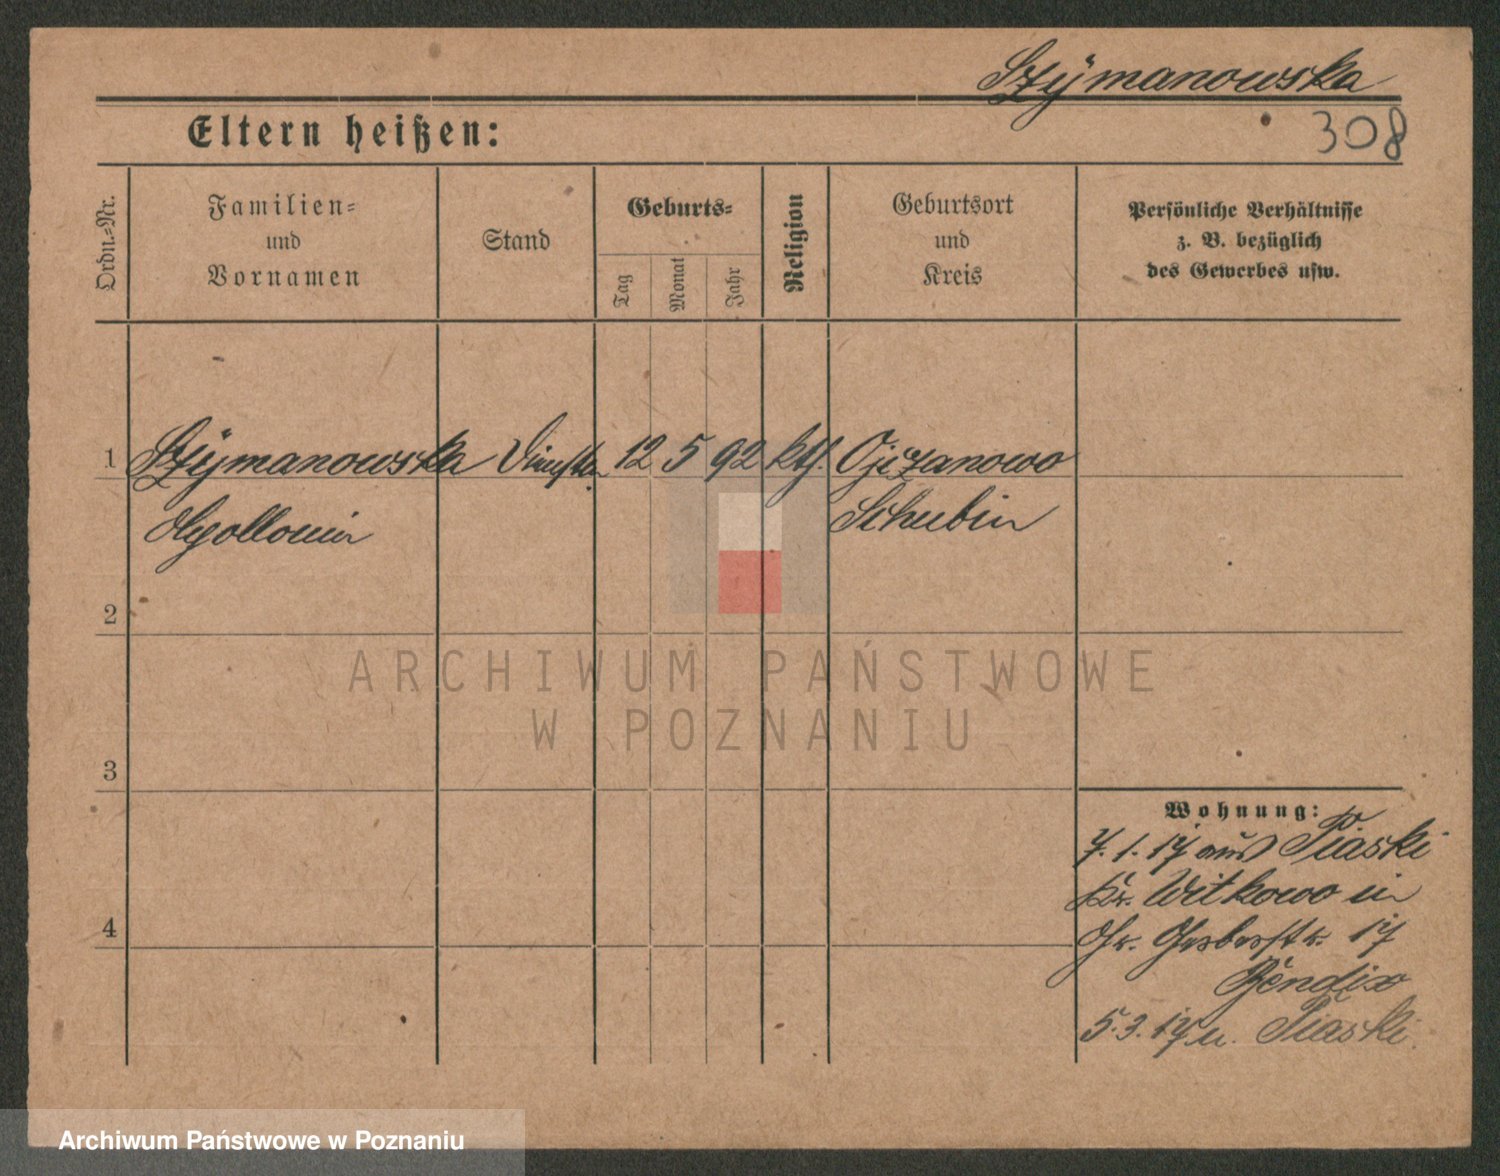 Szÿmanowska
308
Eltern heißen:
Ordn.-Nr.
Familien-
und
Vornamen
Stand
Geburts-
Tag
Monat
Jahr
Religion
Geburtsort
und
Kreis
Persönliche Verhältnisse
z. B. bezüglich
des Gewerbes usw.
1 Szÿmanowska 12 5 92 kth. Ojczanowo
Schubin
2
ARCHIWUM PAŃSTWOWE
W POZNANIU
3
Wohnung:
7.1.17 aus Piaski
Kr. Witkowo in
17
4
Bendix
5.3.17 n. Piaski.
Archiwum Państwowe w Poznaniu